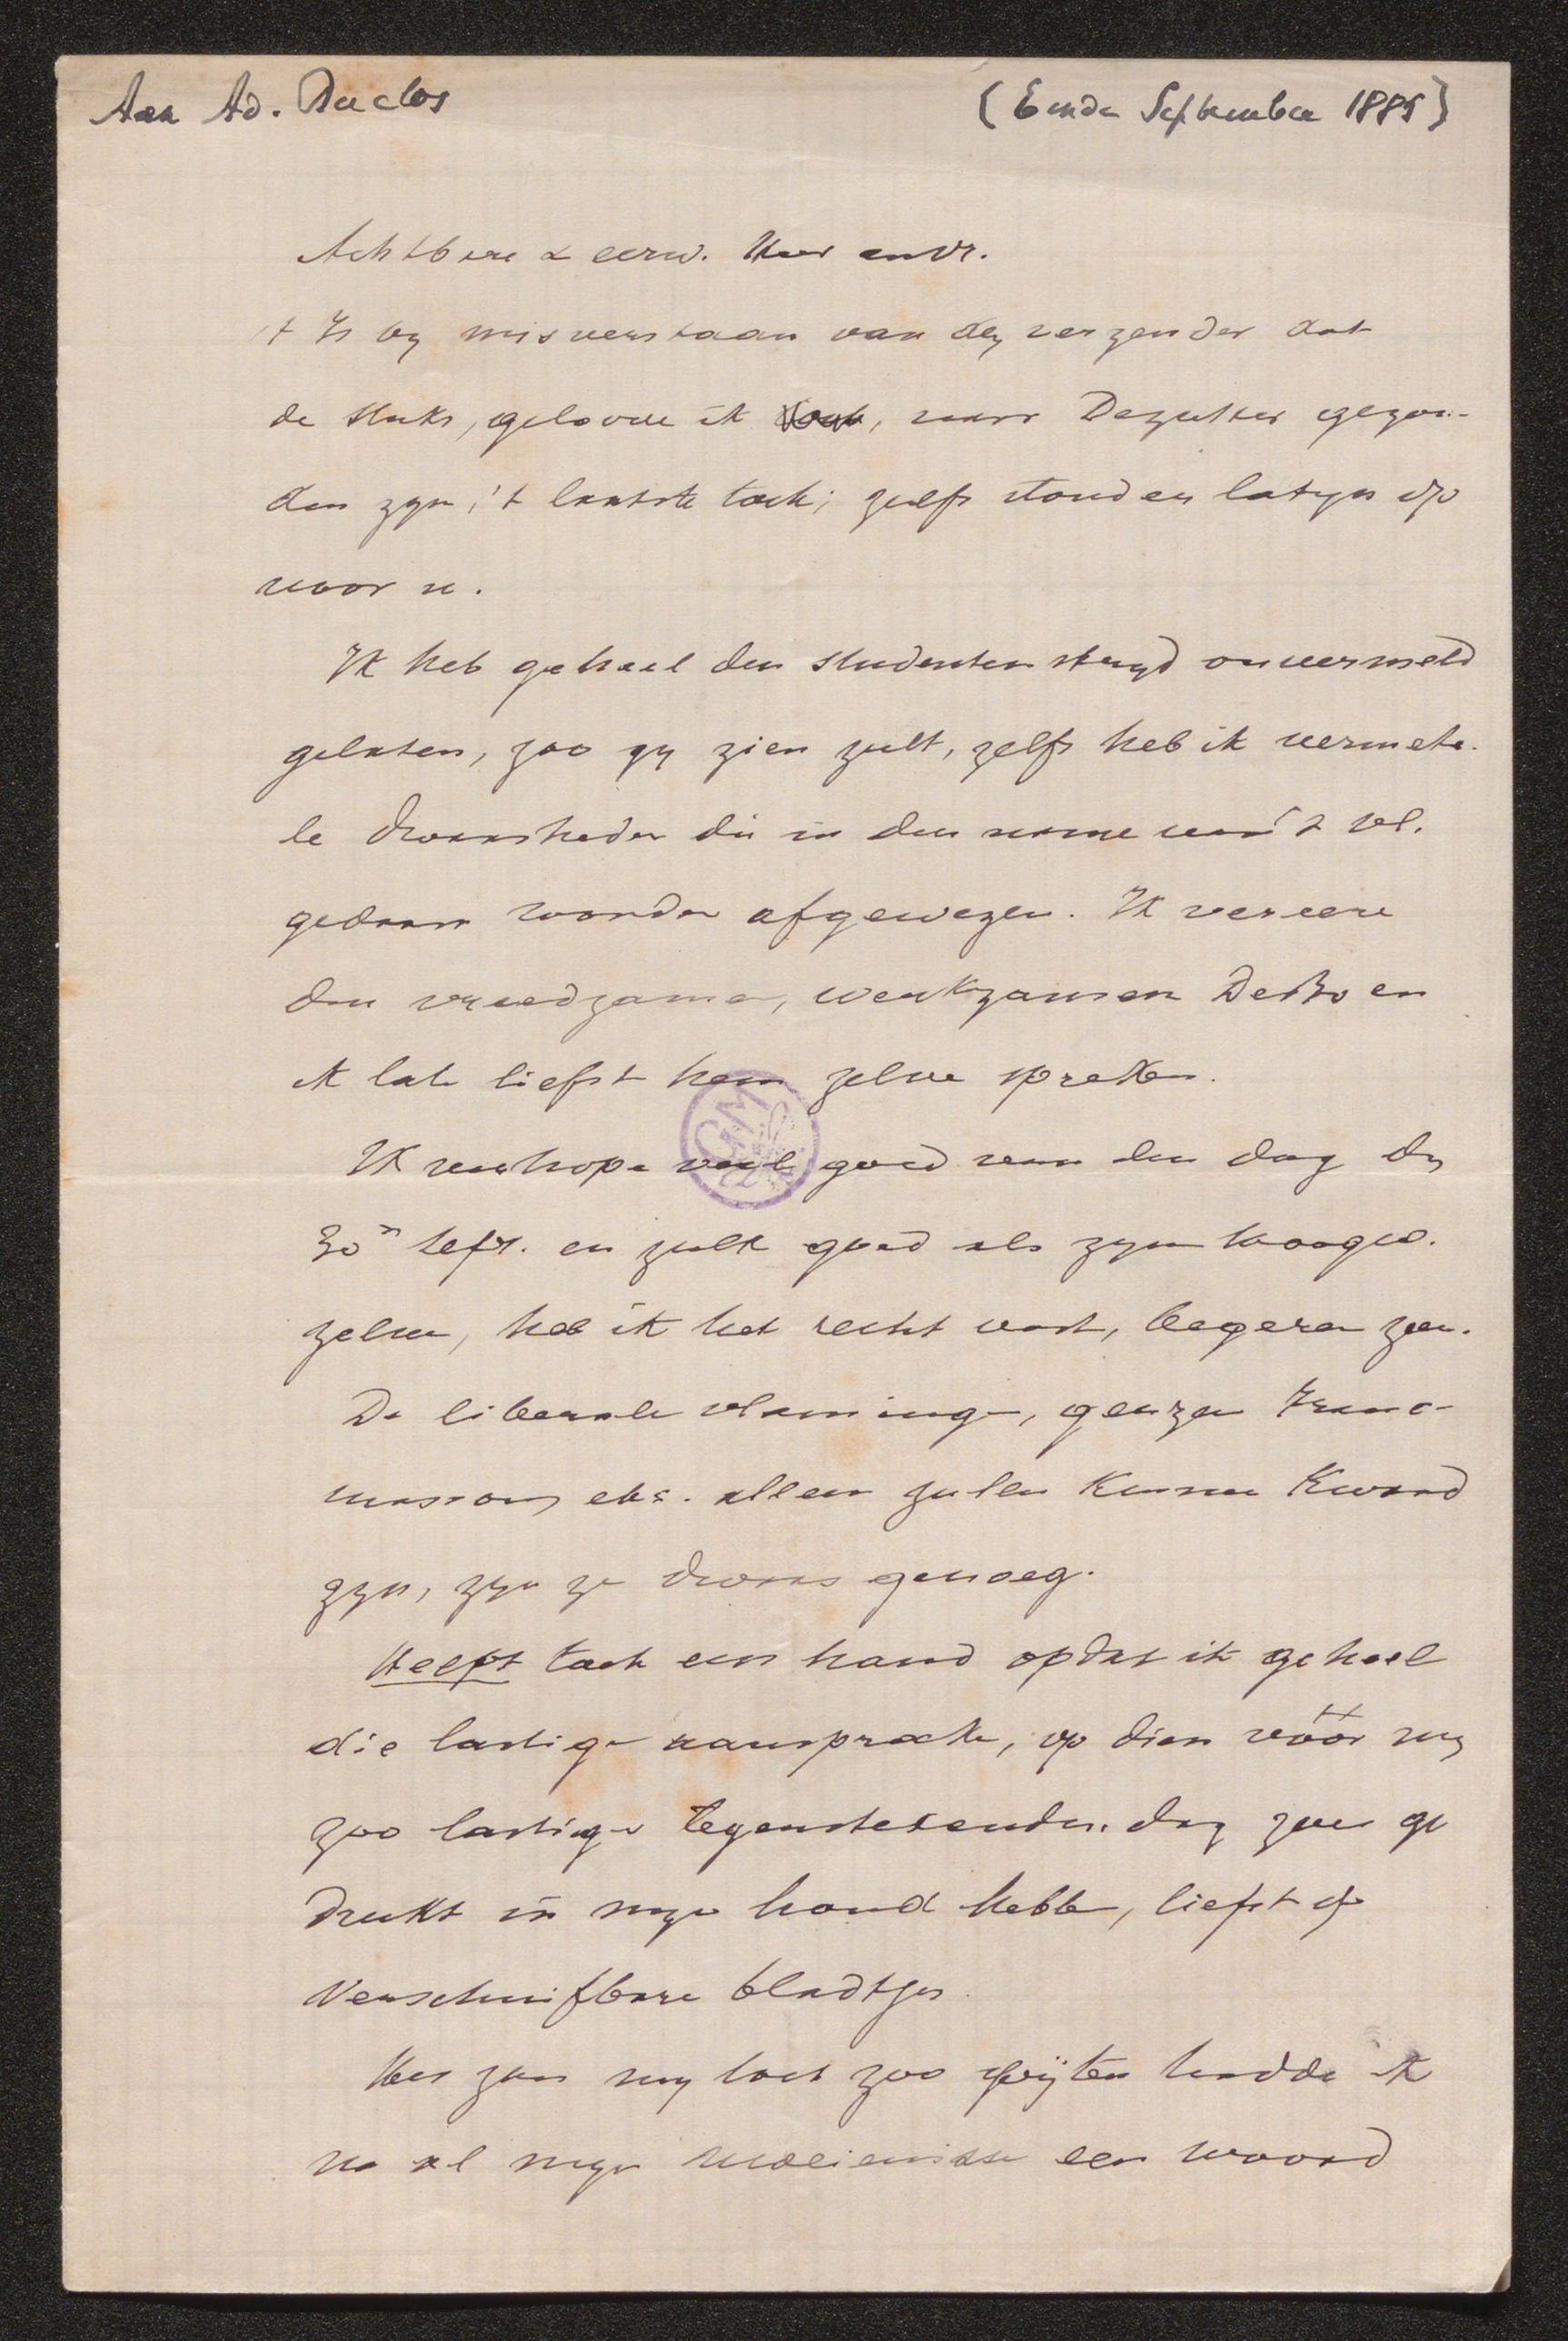 Aan Ad. Duclos
(Einde September 1885)
Achtbare & eerw. Heer en vr.
't Is by misverstaan van den verzender dat
de stuks, geloove ik, naar Dezutter gezon-
den zyn, 't laatste toch; zelfs stond er latyn op
voor u.
Ik heb geheel den studentenstryd onvermeld
gelaten, zoo gy zien zult, zelfs heb ik vermete-
le dwaasheden die in den name van 't vl.
gedaan worden afgewezen. Ik vereere
den vreedzamen, werkzamen DeBo en
ik late liefst hem zelve spreken.
Ik verhope veel goed van den dag des
30n sept. en zulk goed als zyn hoogw.
zelve, heb ik het recht vast, begeren zou.
De liberale vlamingen, geuzen Franc-
massons etc. alleen zullen kunnen kwaad
zyn, zyn ze dwaas genoeg.
Heeft toch een hand opdat ik geheel
die lastige aansprake, op dien vóór my
zoo lastigen tegenstekenden dag zou ge
drukt in myn hand hebben, liefst op
verschuifbare bladtjes.
Het zou my toch zoo spÿten hadde ik
na al myn moeienisse een woord